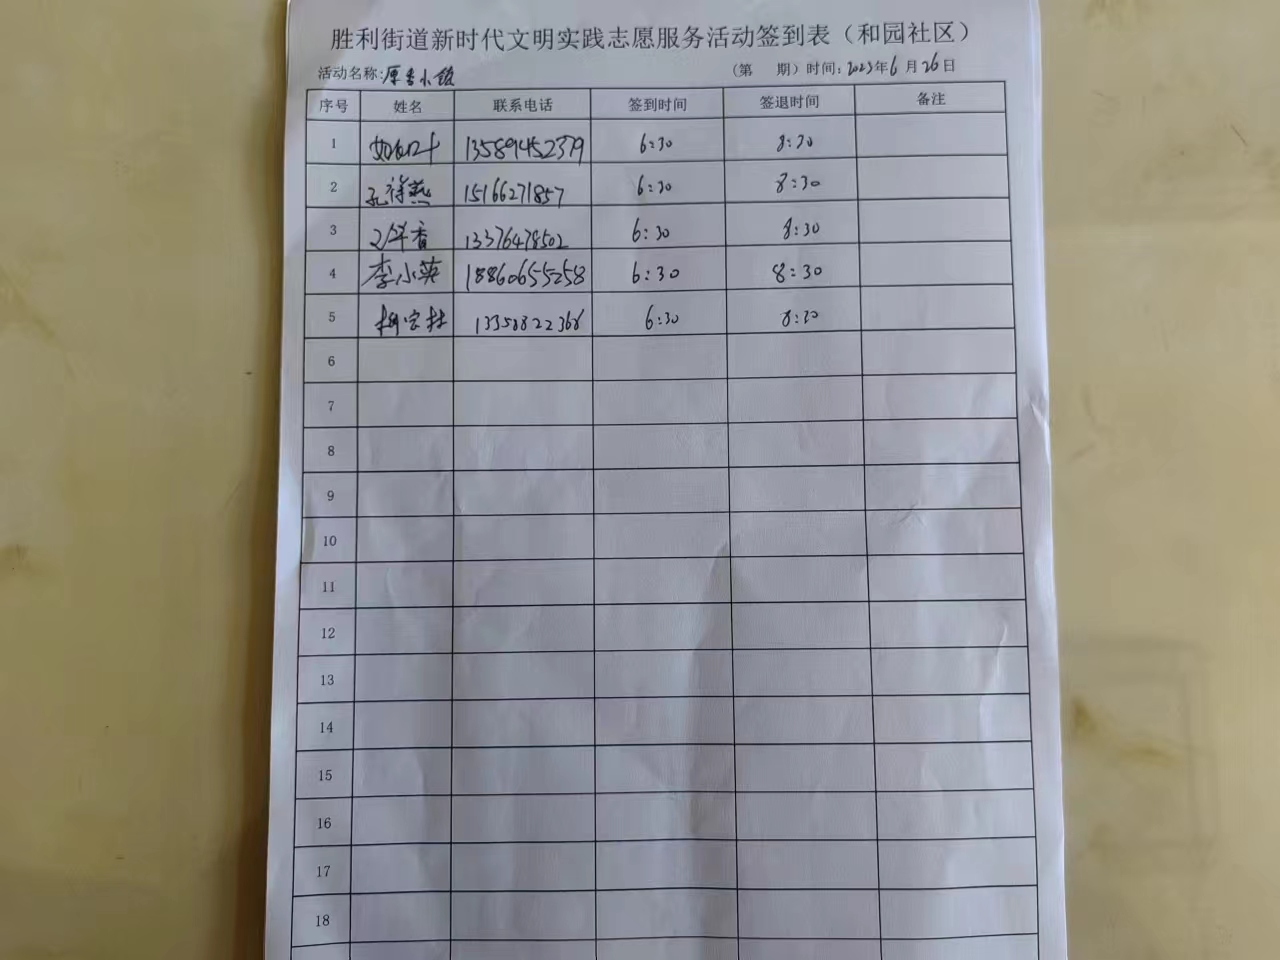 胜利街道新时代文明实践志愿服务活动签到表（和园社区）
活动名称:原香小镇 （第 期）时间:2023年6月26日
序号 姓名 联系电话 签到时间 签退时间 备注
1 13589452379 6:30 8:30
2 孔祥燕 15166271857 6:30 8:30
3 13376478502 6:30 8:30
4 李小英 18860655258 6:30 8:30
5 13358822368 6:30 8:30
6
7
8
9
10
11
12
13
14
15
16
17
18